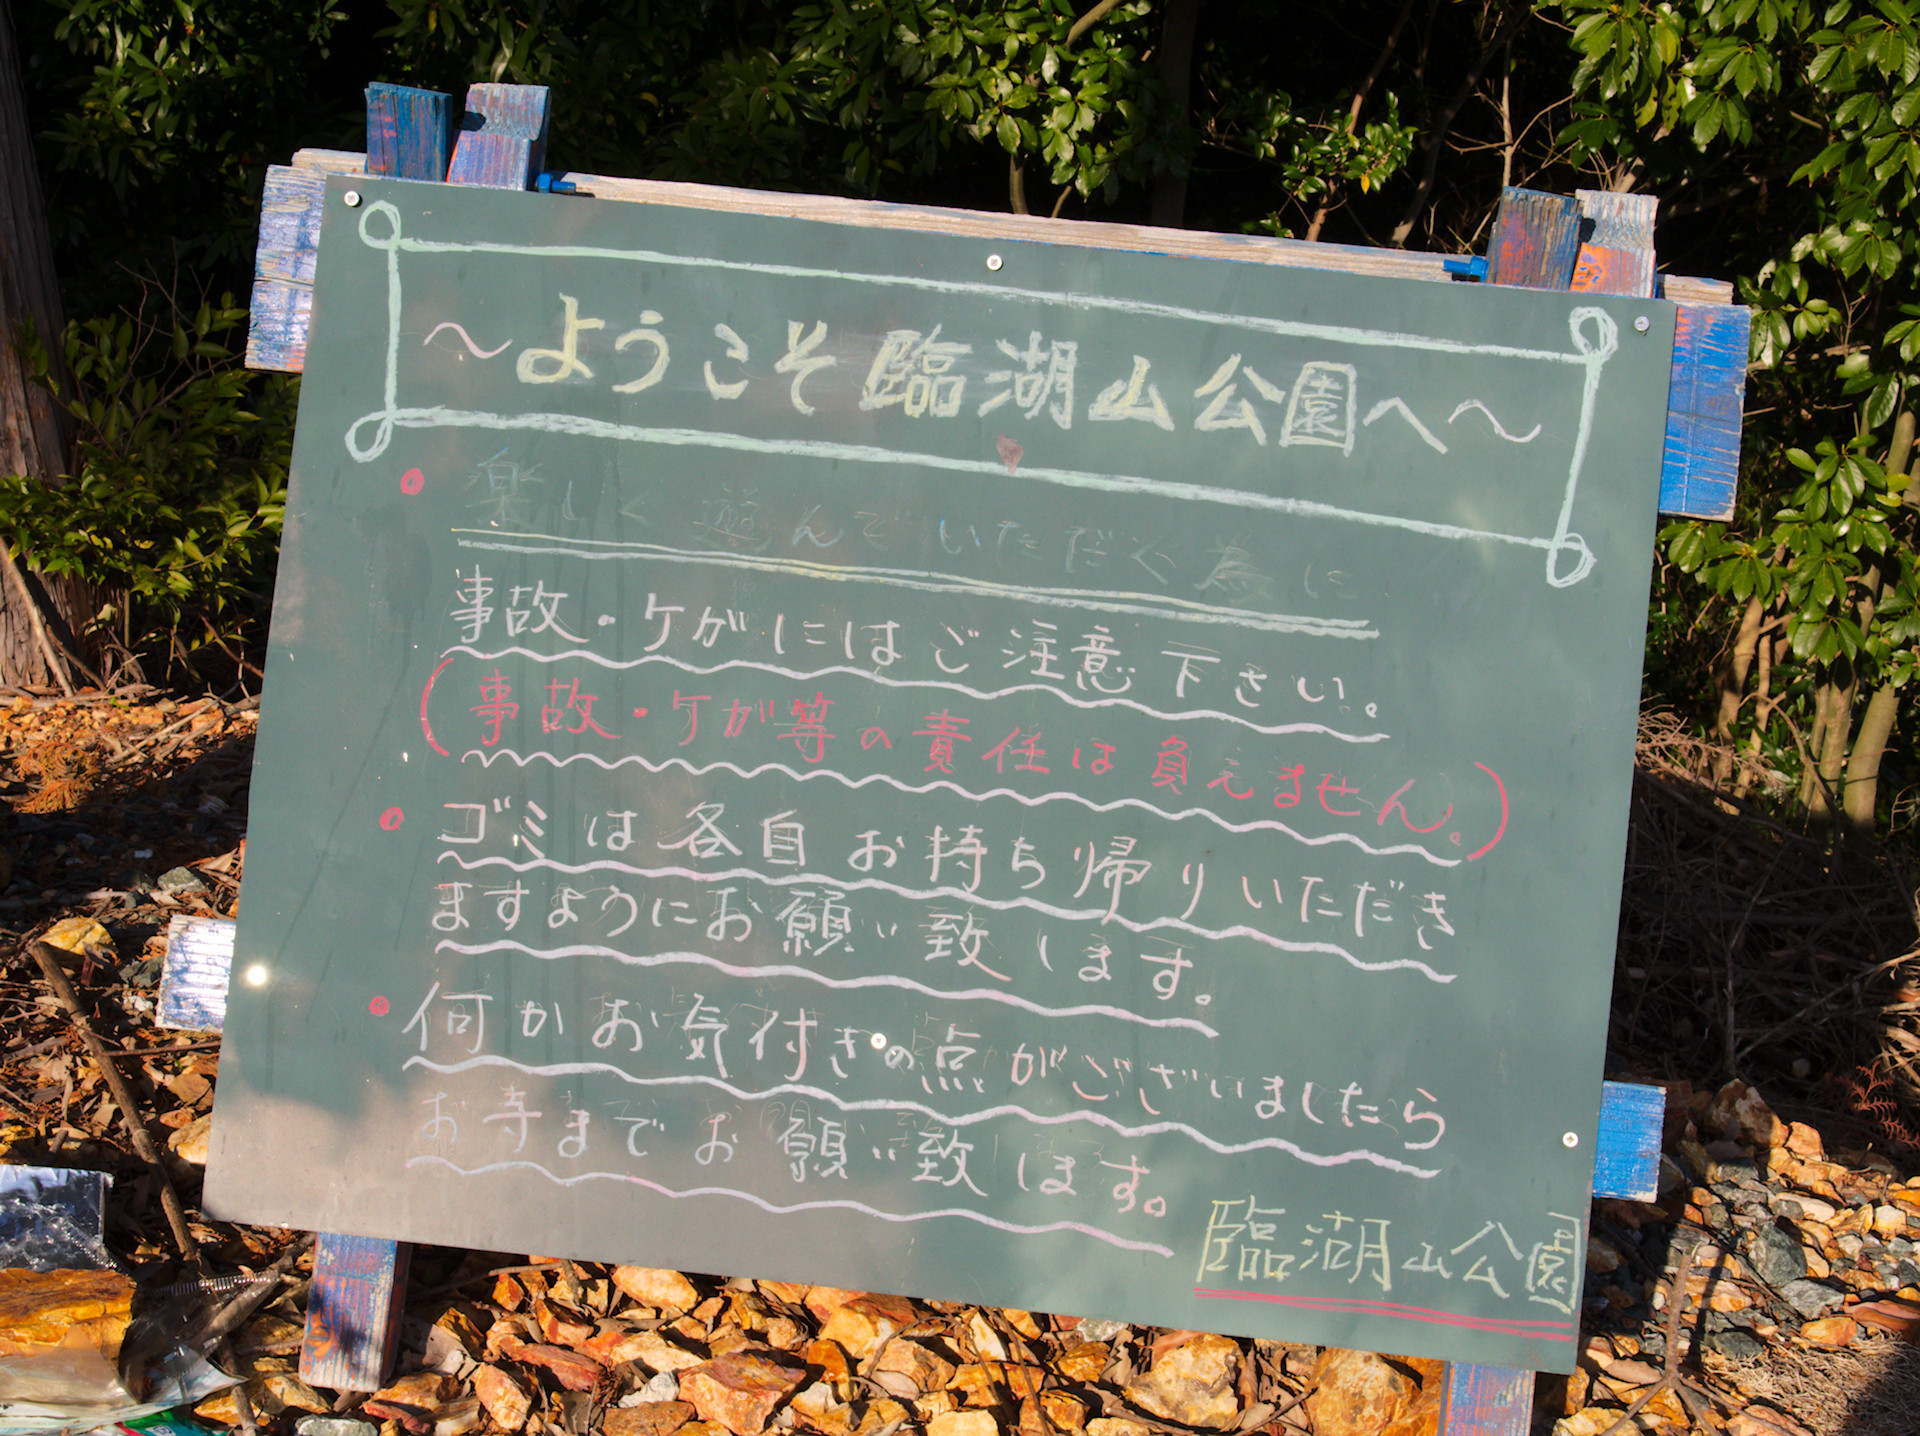 〜ようこそ臨湖山公園へ〜
楽しく遊んでいただく為に
事故・ケガにはご注意下さい。
(事故・ケガ等の責任は負えません。)
ゴミは各自お持ち帰りいただき
ますようにお願い致します。
何かお気付きの点がございましたら
お寺までお願い致します。
臨湖山公園